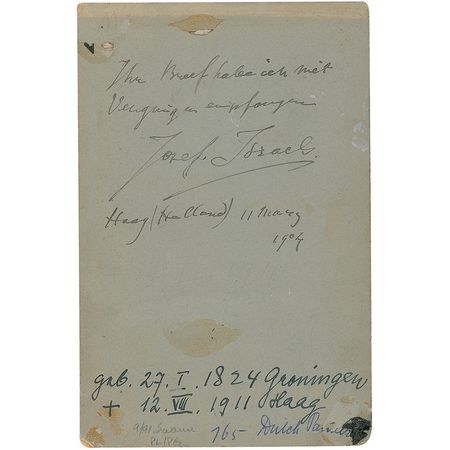 Ihr Breef habe ich mit
Vengnügen empfangen
Jozef Israels.
Haag (Holland) 11 Marz
1904
geb. 27. I. 1824 Groningen
+ 12. VIII. 1911 Haag
9/91 Swann
PL1PG
765- Dutch